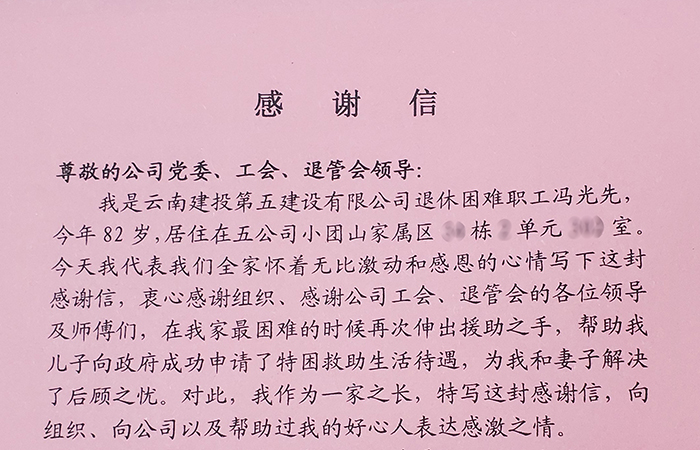 感 谢 信
尊敬的公司党委、工会、退管会领导：
我是云南建投第五建设有限公司退休困难职工冯光先，
今年82岁，居住在五公司小团山家属区 栋 单元 室。
今天我代表我们全家怀着无比激动和感恩的心情写下这封
感谢信，衷心感谢组织、感谢公司工会、退管会的各位领导
及师傅们，在我家最困难的时候再次伸出援助之手，帮助我
儿子向政府成功申请了特困救助生活待遇，为我和妻子解决
了后顾之忧。对此，我作为一家之长，特写这封感谢信，向
组织、向公司以及帮助过我的好心人表达感激之情。